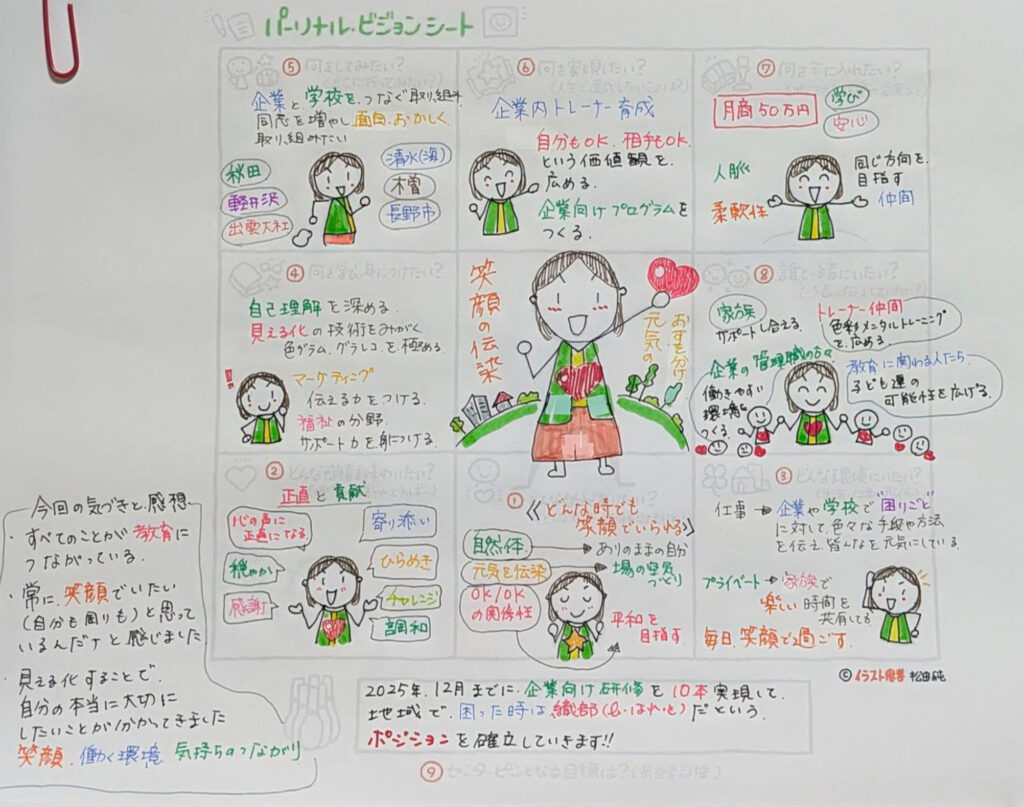 パーソナル・ビジョンシート
⑤ 何をしてみたい?
企業と学校をつなぐ取り組み
同志を増やし面白おかしく
取り組みたい
秋田
軽井沢
出雲大社
清水(海)
木曽
長野市
⑥ 何を実現したい?
企業内トレーナー育成
自分もOK、相手もOK
という価値観を
広める。
企業向けプログラムを
つくる。
⑦ 何を手に入れたい?
月商50万円
学び
安心
人脈
柔軟性
同じ方向を
目指す
仲間
④ 何を学び、身につけたい?
自己理解を深める。
見える化の技術をみがく
色グラム、グラレコを極める
マーケティング
伝える力をつける。
福祉の分野
サポート力を身につける。
笑顔の伝染
元気の
おすそ分け
⑧ 誰と一緒にいたい?
家族
サポートし合える。
トレーナー仲間
色彩メンタルトレーニング
を広める。
企業の管理職の方々
働きやすい
環境を
つくる。
教育に関わる人たち
子ども達の
可能性を広げる。
②
正直と貢献
心の声に
正直になる
穏やか
感謝
寄り添い
ひらめき
チャレンジ
調和
①
《どんな時でも
笑顔でいられる》
自然体
ありのままの自分
元気を伝染
場の空気
づくり
OK/OK
の関係性
平和を
目指す
③ どんな環境にいたい?
仕事 → 企業や学校で"困りごと"
に対して、色々な手段や方法
を伝え皆んなを元気にしている。
プライベート → 家族で
楽しい時間を
共有してる
毎日、笑顔で過ごす。
© イラスト思考 松田純
今回の気づきと感想
・すべてのことが教育に
つながっている。
・常に、笑顔でいたい
(自分も周りも)と思って
いるんだナと感じました
・見える化することで、
自分の本当に大切に
したいことが分かってきました
笑顔、働く環境、気持ちのつながり
2025年、12月までに、企業向け研修を10本実現して、
地域で、困った時は織部だという、
ポジションを確立していきます!!
⑨ センターピンとなる目標は?